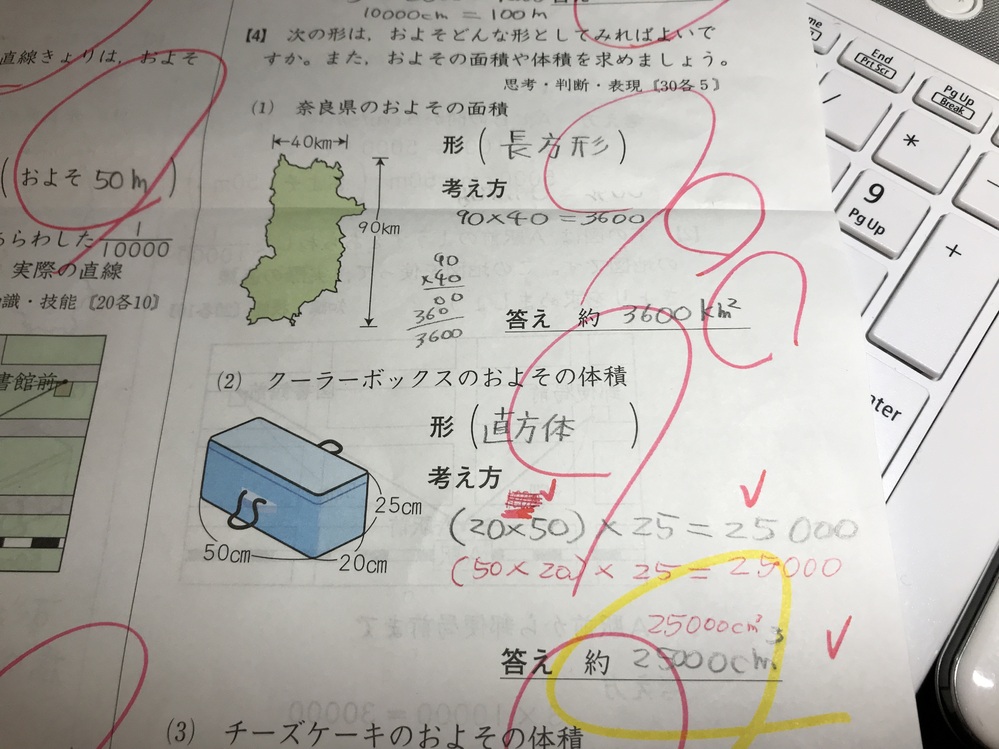 10000cm = 100m
【4】 次の形は，およそどんな形としてみればよいで
すか。また，およその面積や体積を求めましょう。
思考・判断・表現〔30各5〕
(1) 奈良県のおよその面積
40km
90km
形 (長方形)
考え方
90×40=3600
90
×40
00
360
3600
答え 約 3600km²
(2) クーラーボックスのおよその体積
形 (直方体)
考え方
25cm
50cm
20cm
(20×50)×25=25000
(50×20)×25=25000
25000cm³
答え 約 25000cm³
(3) チーズケーキのおよその体積
直線きょりは，およそ
(およそ 50m)
らわした 1/10000
実際の直線
識・技能〔20各10〕
書館前
End
Prt Scr
Pg Up
Break
/
*
9
Pg Up
+
nter